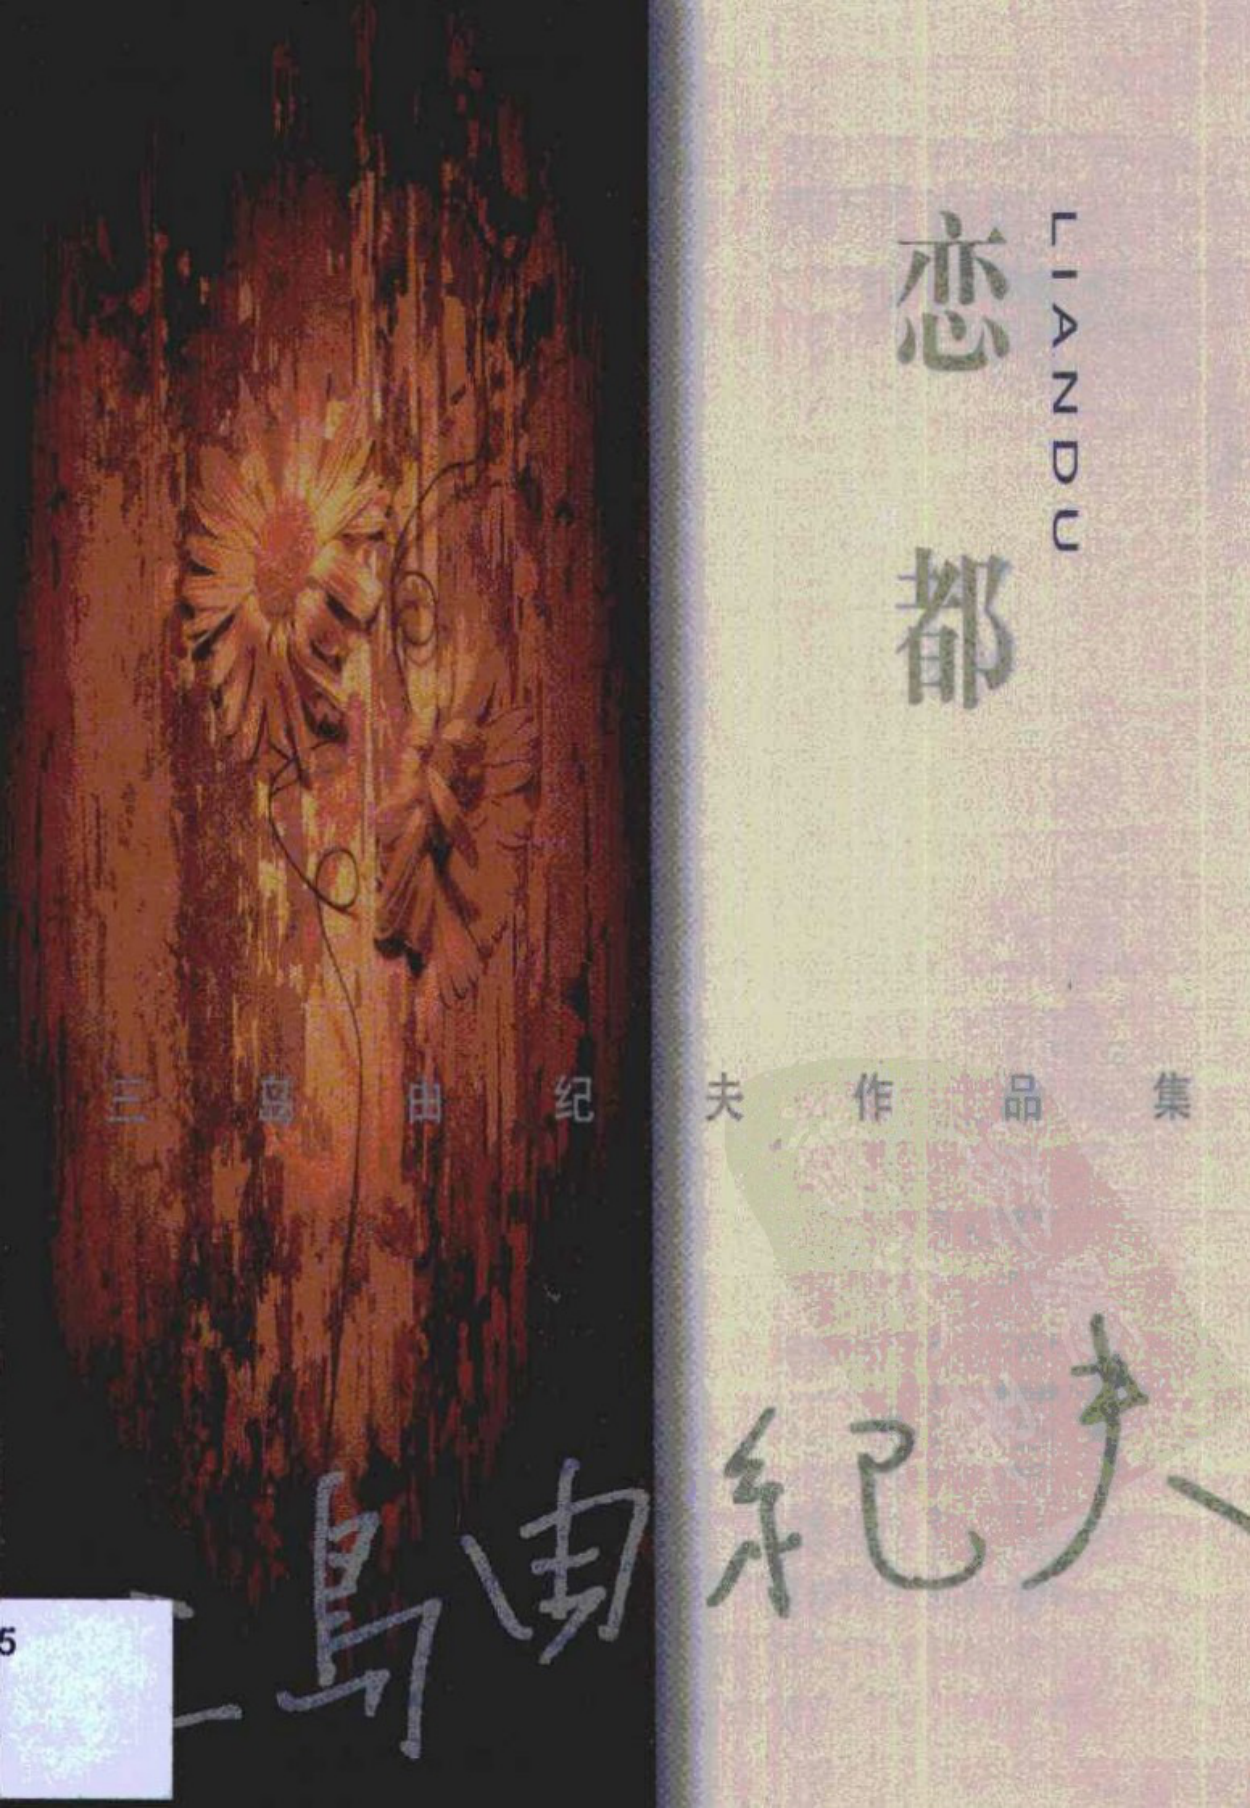 恋都
LIANDU
三岛由纪夫作品集
三島由紀夫
5